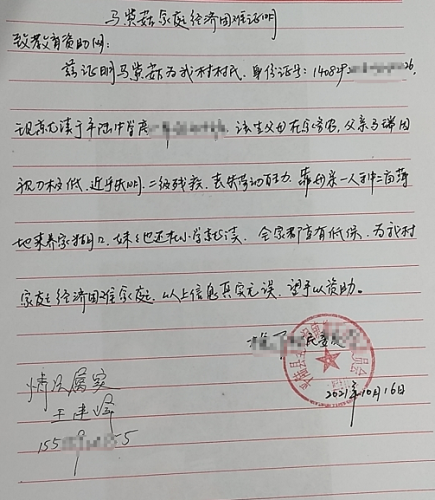 马英茹家庭经济困难证明
致教育资助网:
兹证明马英茹为我村村民,身份证号:140829 26,
现就读于平陆中学 该生父母在家务农,父亲马瑞因
视力极低,近乎失明,二级残疾,丧失劳动能力,靠母亲一人种二亩薄
地来养家糊口,妹妹还在小学就读,全家都享有低保,为我村
家庭经济困难家庭,以上信息真实无误,望予以资助。
民委员
2021年10月16日
情况属实
王建峰
155 55